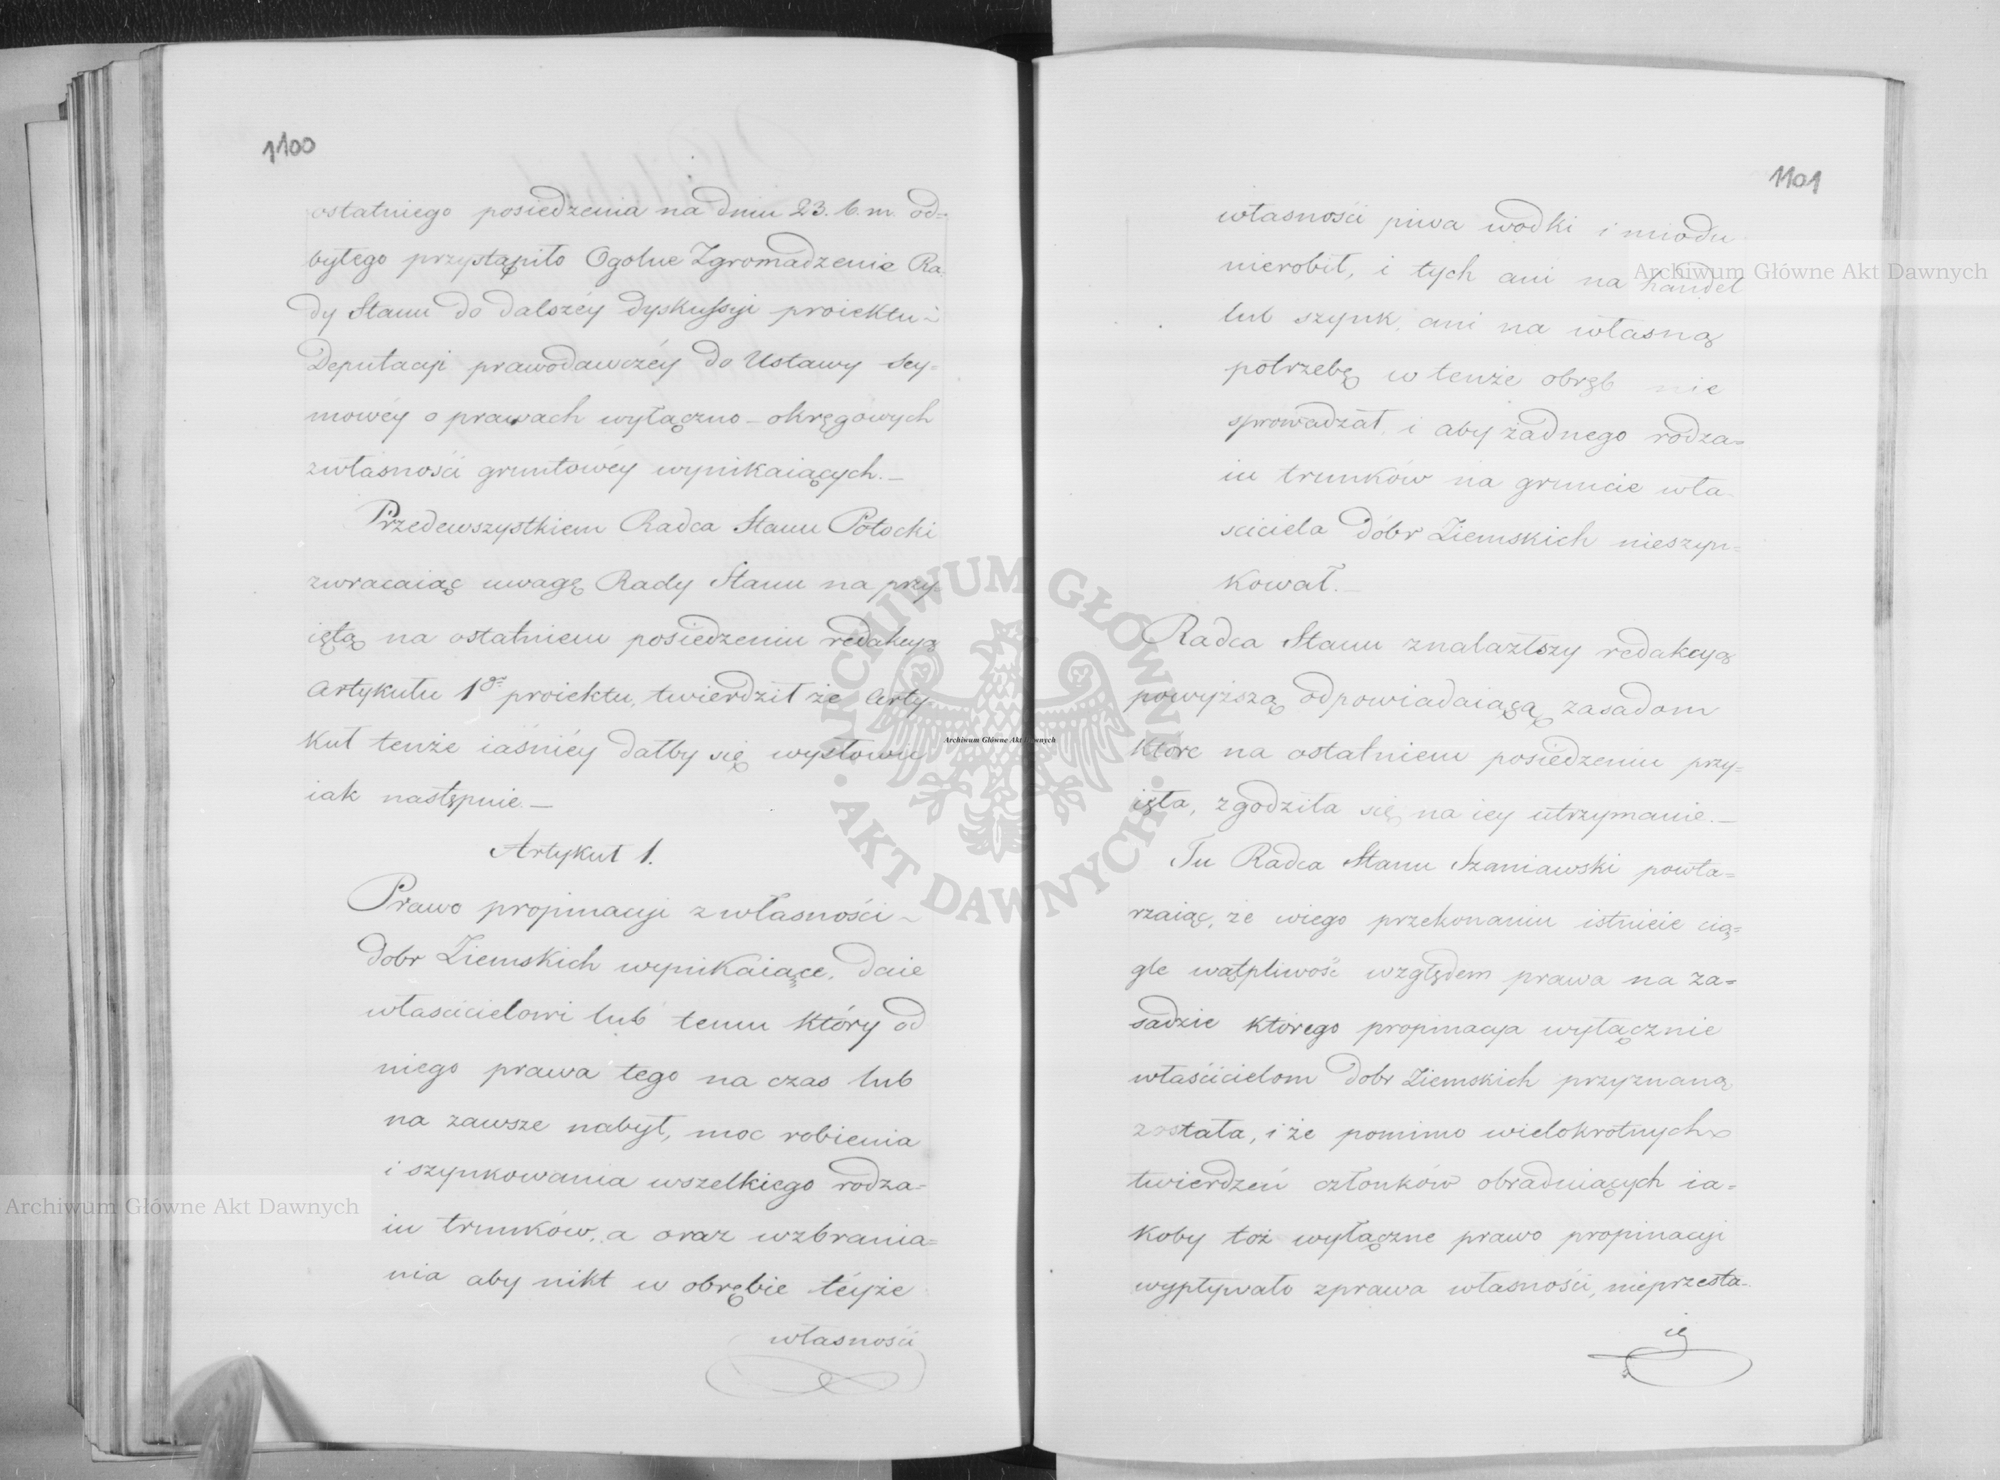 1100
ostatniego posiedzenia na dniu 23. b. m. od=
bytego przystąpiło Ogolne Zgromadzenie Ra
dy Stanu do dalszéy dyskussyi proiektu
Deputacyi prawodawczéy do Ustawy Sey=
mowéy o prawach wyłączno-okręgowych
zwłasności gruntowéy wynikaiących.—
Przedewszystkiem Radca Stanu Potocki
zwracaiąc uwagę Rady Stanu na przy
iętą na ostatniem posiedzeniu redakcyą
Artykułu 1go proiektu, twierdził że Arty-
kuł tenże iaśniéy dałby się wysłowić
iak następnie.—
Artykuł 1.
Prawo propinacyi z własności
dobr Ziemskich wynikaiące, daie
właścicielowi lub temu który od
niego prawa tego na czas lub
na zawsze nabył, moc robienia
i szynkowania wszelkiego rodza=
iu trunków, a oraz wzbrania=
nia aby nikt w obrębie téyże
własności
1101
własności piwa wodki i miodu
nierobił, i tych ani na handel
lub szynk, ani na własną
potrzebę w tenże obręb nie
sprowadzał, i aby żadnego rodza=
iu trunków na gruncie wła
sciciela Dóbr Ziemskich nieszyn=
kował.—
Radca Stanu znalazłszy redakcyą
powyższą odpowiadaiącą zasadom
które na ostatniem posiedzeniu przy=
ięła, zgodziła się na iey utrzymanie.—
Tu Radca Stanu Szaniawski powta=
rzaiąc, że wiego przekonaniu istnieie cią=
gle wątpliwość względem prawa na za=
sadzie którego propinacya wyłącznie
właścicielom dobr Ziemskich przyznaną
została, i że pomimo wielokrotnych
twierdzeń członków obraduiących ia=
koby toż wyłączne prawo propinacyi
wypływało zprawa własności, nieprzesta-
ię
Archiwum Główne Akt Dawnych
Archiwum Główne Akt Dawnych
Archiwum Główne Akt Dawnych
ARCHIWUM GŁÓWNE
AKT DAWNYCH